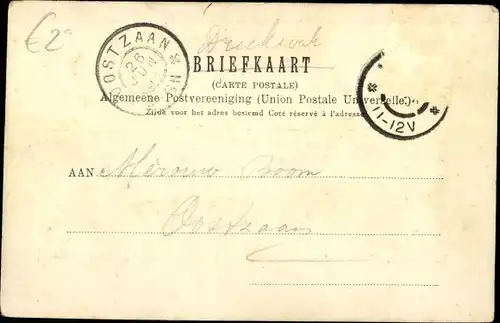 €2
Drukwerk
OOSTZAAN
26
BRIEFKAART
(CARTE POSTALE)
Algemeene Postvereeniging (Union Postale Universelle).
Zijde voor het adres bestemd Coté réservé à l'adresse
11-12V
AAN Mevrouw Boom
Oostzaan